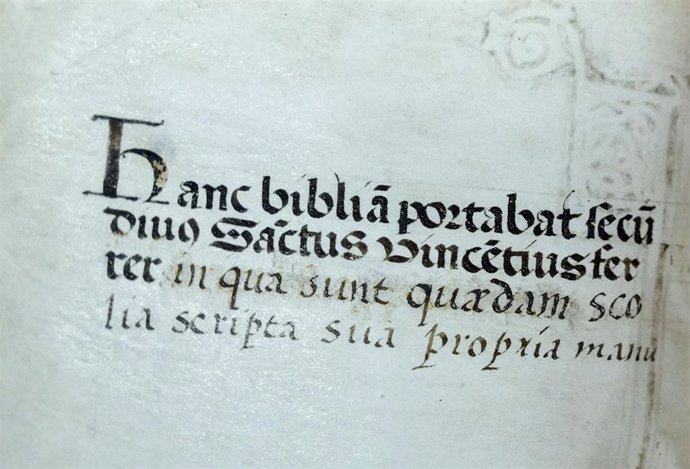 Hanc bibliā portabat secū
diuꝰ Sāctus Vincētius fer
rer in qua sunt quædam sco
lia scripta sua propria manu